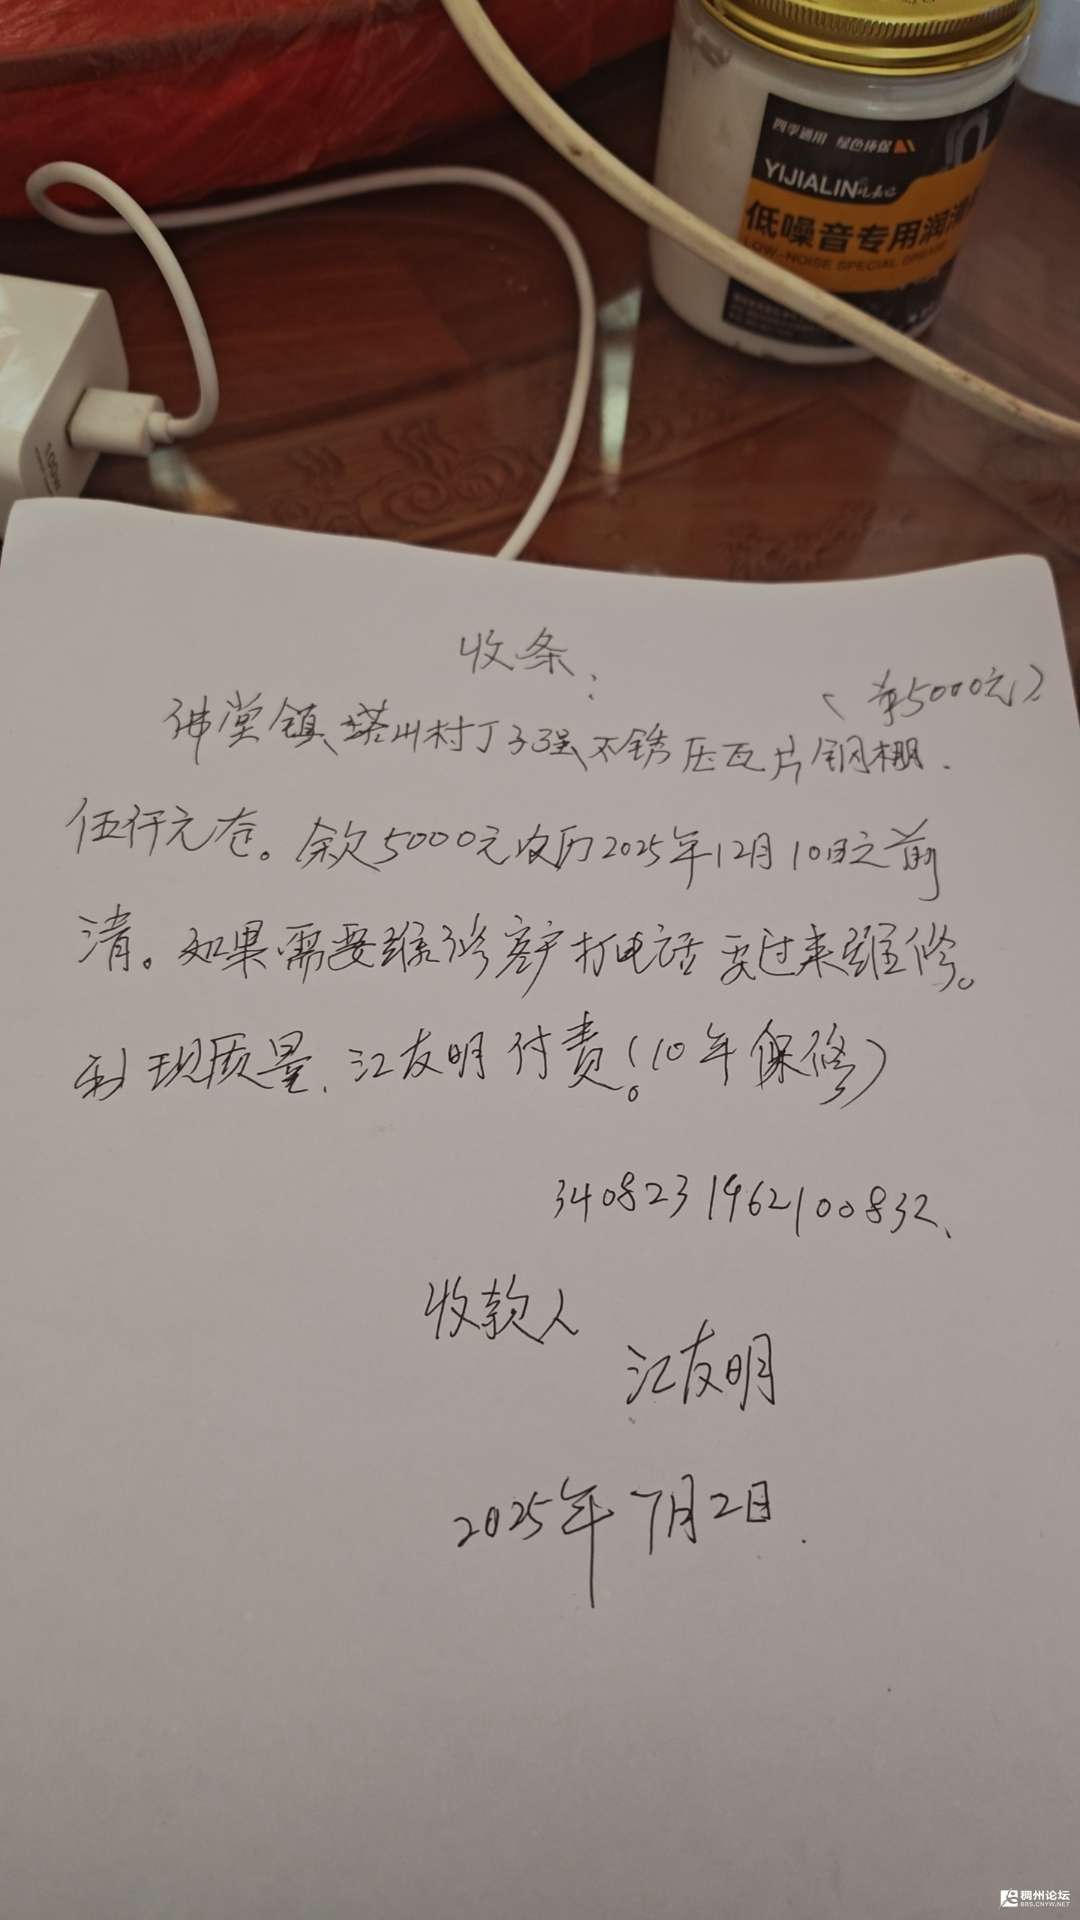 四季通用 绿色环保
YIJIALIN
低噪音专用润滑
LOW-NOISE SPECIAL GREASE
100W
收条:
(5000元)
佛堂镇、塔山村丁子强不锈压瓦片钢棚.
伍仟元左。余欠5000元农历2025年12月10日之前
清。如果需要维修客户打电话要过来维修。
出现质量、江友明付责!(10年保修)
340823196210083
收款人
江友明
2025年7月2日.
稠州论坛
BBS.CNYW.NET